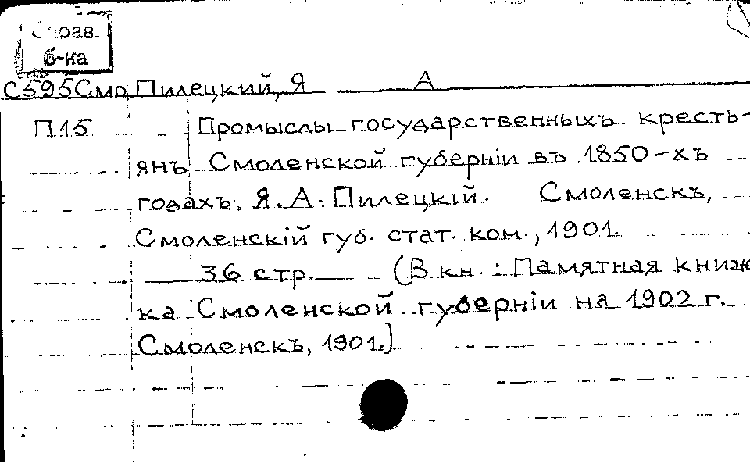 Справ.
б-ка
С595Смо Пилецкий, Я А
П15 Промыслы государственныхъ кресть-
янъ Смоленской губерніи въ 1850-хъ
годахъ. Я. А. Пилецкій. Смоленскъ,
Смоленскій губ. стат. ком., 1901.
36 стр. (В кн.: Памятная книж
ка Смоленской губерніи на 1902 г.
Смоленскъ, 1901.)